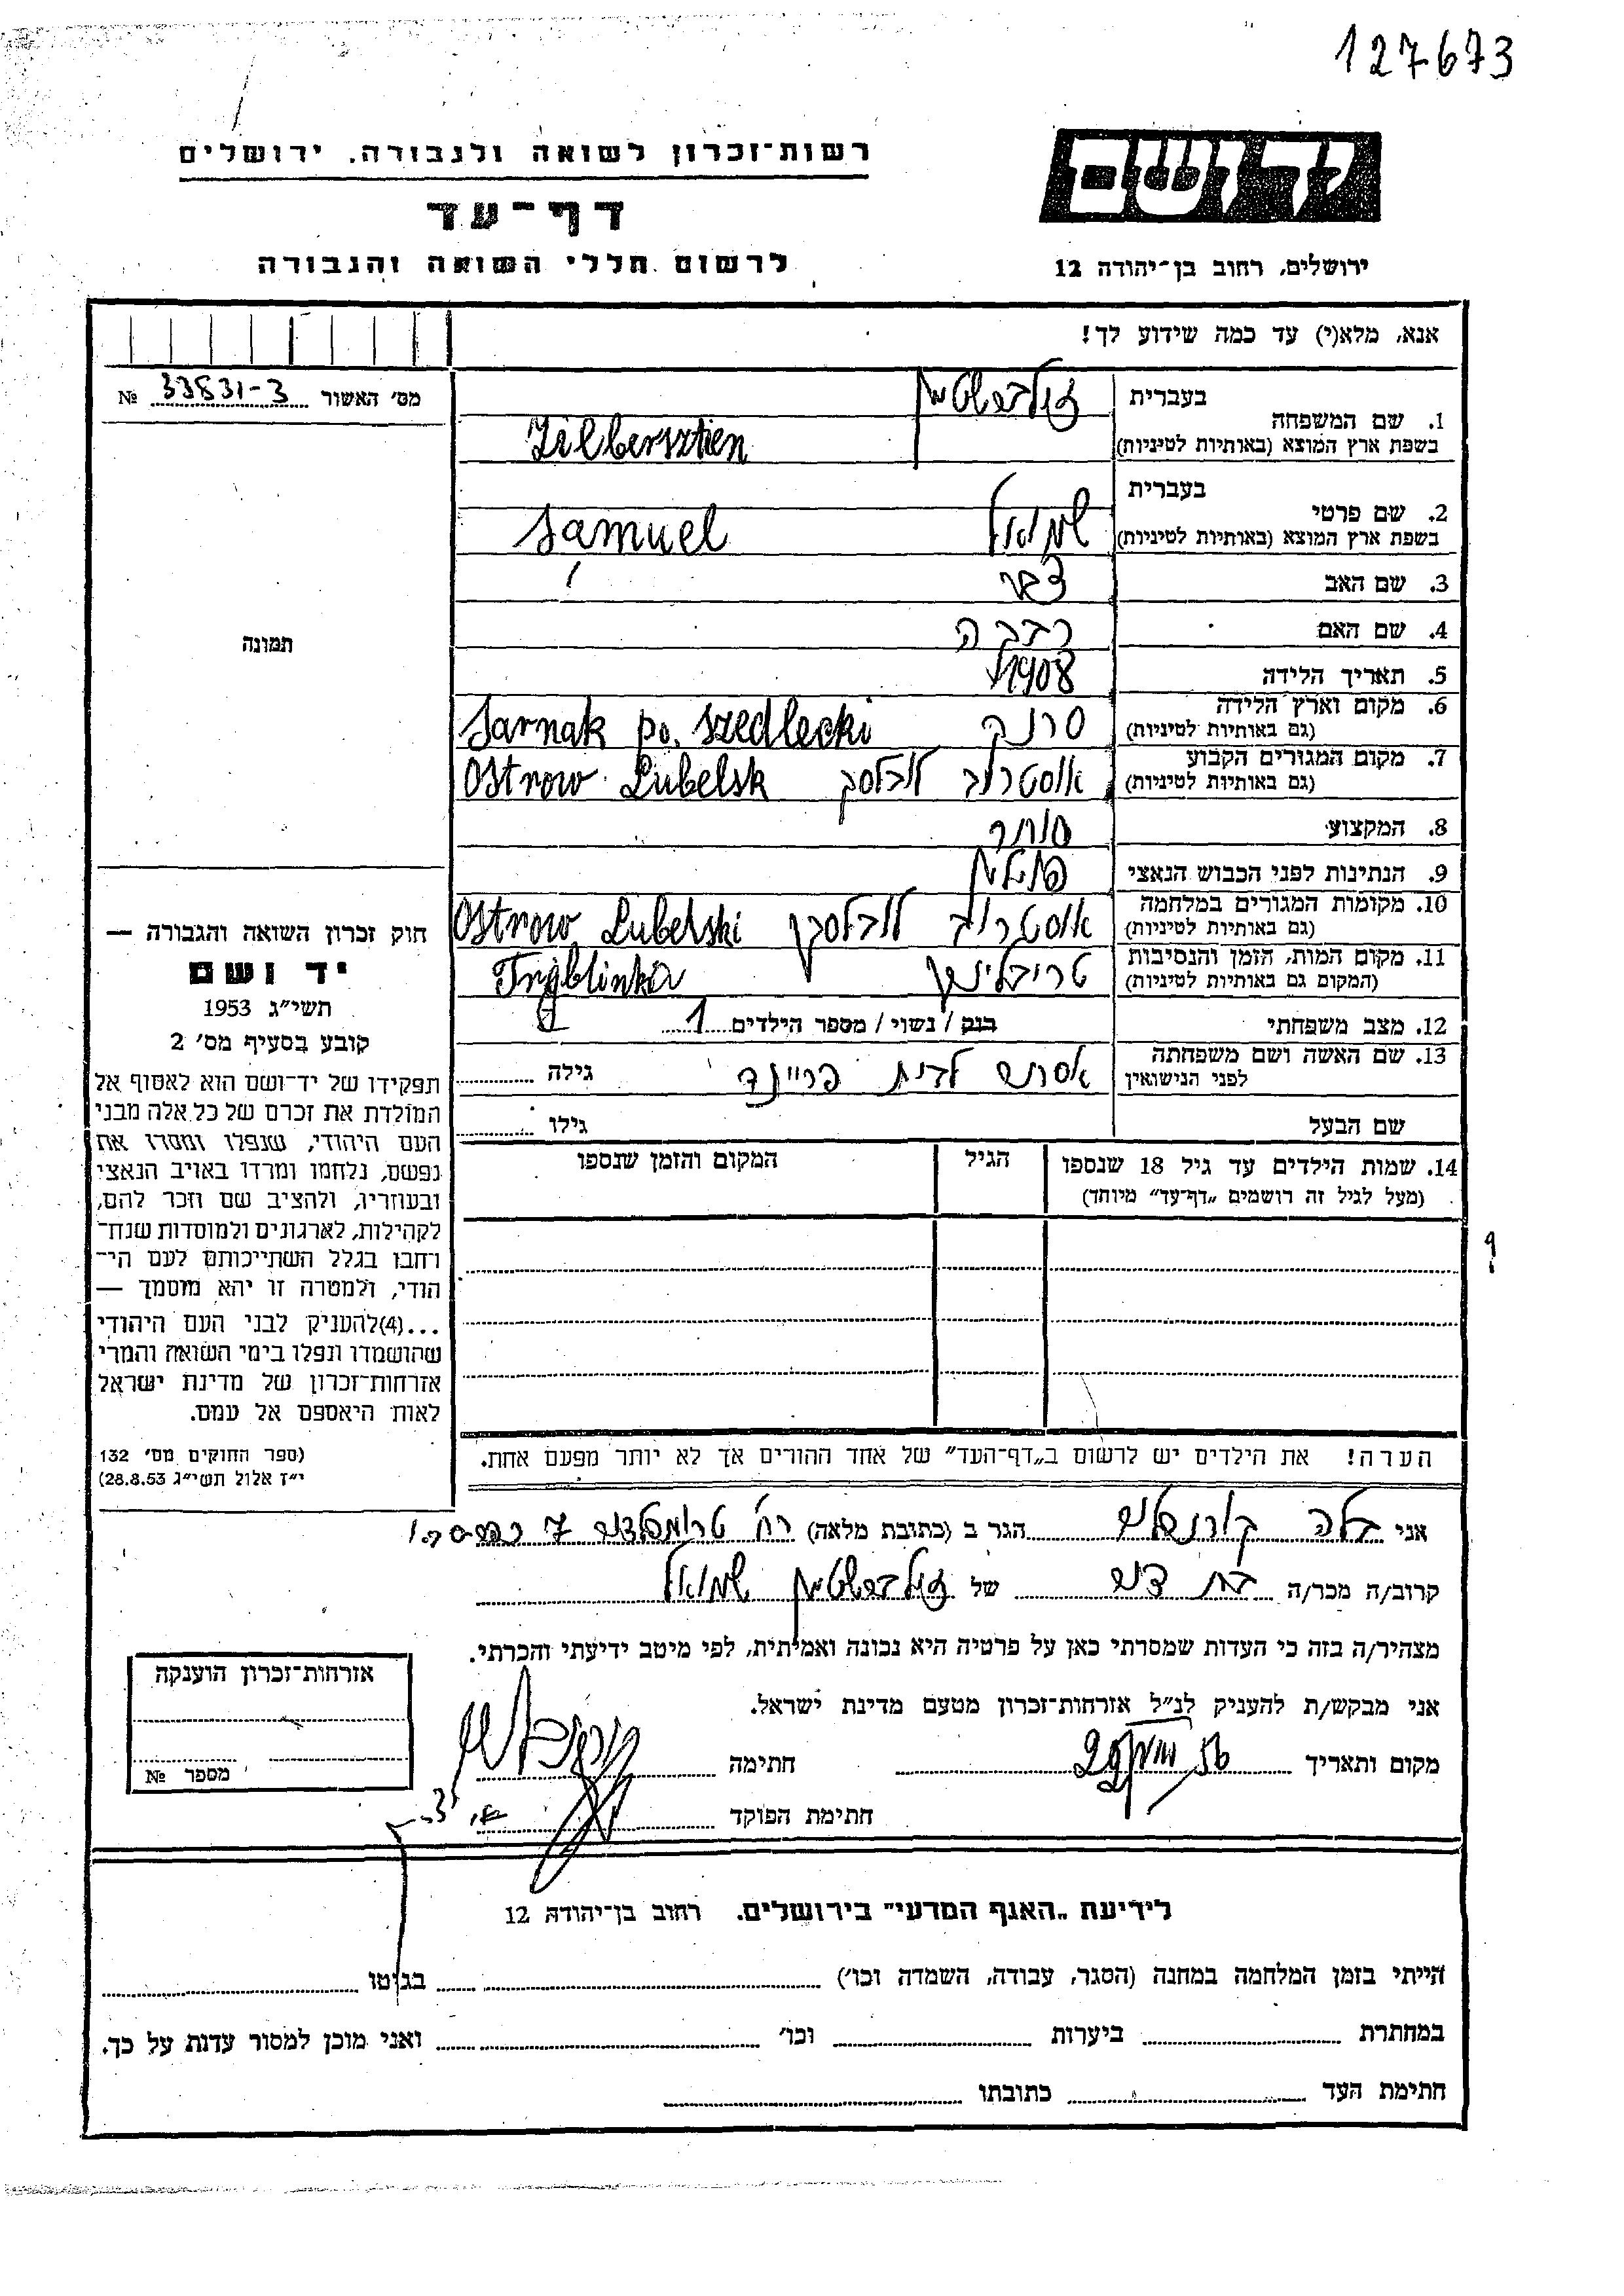 127673
רשות־זכרון לשואה ולגבורה. ירושלים
דף־עד
לרשום חללי השואה והגבורה
יד ושם
ירושלים, רחוב בן־יהודה 12
אנא, מלא(י) עד כמה שידוע לך!
מס׳ האשור 33831-3 №
1. שם המשפחה בעברית זילברשטין
בשפת ארץ המוצא (באותיות לטיניות) Zilbersztien
2. שם פרטי בעברית שמואל
בשפת ארץ המוצא (באותיות לטיניות) Samuel
3. שם האב
4. שם האם רבקה
5. תאריך הלידה 1908
6. מקום וארץ הלידה
(גם באותיות לטיניות) Sarnak po. szedlecki
7. מקום המגורים הקבוע
(גם באותיות לטיניות) אוסטרוב לובלסק Ostrow Lubelsk
8. המקצוע סוחר
9. הנתינות לפני הכבוש הנאצי פולנית
10. מקומות המגורים במלחמה
(גם באותיות לטיניות) אוסטרוב לובלסקי Ostrow Lubelski
11. מקום המות, הזמן והנסיבות
(המקום גם באותיות לטיניות) טריבלינקה Tryblinka
12. מצב משפחתי רווק / נשוי / מספר הילדים 1
13. שם האשה ושם משפחתה
לפני הנישואין אסתר לבית פריינד גילה
שם הבעל גילו
14. שמות הילדים עד גיל 18 שנספו
(מעל לגיל זה רושמים „דף־עד״ מיוחד)
הגיל
המקום והזמן שנספו
הערה! את הילדים יש לרשום ב„דף־העד״ של אחד ההורים אך לא יותר מפעם אחת.
תמונה
חוק זכרון השואה והגבורה —
יד ושם
תשי״ג 1953
קובע בסעיף מס׳ 2
תפקידו של יד־ושם הוא לאסוף אל
המולדת את זכרם של כל אלה מבני
העם היהודי, שנפלו ומסרו את
נפשם, נלחמו ומרדו באויב הנאצי
ובעוזריו, ולהציב שם וזכר להם,
לקהילות, לארגונים ולמוסדות שנח־
רחבו בגלל השתייכותם לעם הי־
הודי, ולמטרה זו יהא מוסמך —
...(4)להעניק לבני העם היהודי
שהושמדו ונפלו בימי השואה והמרי
אזרחות־זכרון של מדינת ישראל
לאות היאספם אל עמם.
(ספר החוקים מס׳ 132
י״ז אלול תשי״ג 28.8.53)
אני בלה הגר ב (כתובת מלאה) רח׳ 7
קרוב/ה מכר/ה בת דוד של זילברשטין שמואל
מצהיר/ה בזה כי העדות שמסרתי כאן על פרטיה היא נכונה ואמיתית, לפי מיטב ידיעתי והכרתי.
אני מבקש/ת להעניק לנ״ל אזרחות־זכרון מטעם מדינת ישראל.
מקום ותאריך 56 חתימה
חתימת הפוקד
אזרחות־זכרון הוענקה
מספר №
לידיעת „האגף המדעי״ בירושלים. רחוב בן־יהודה 12
הייתי בזמן המלחמה במחנה (הסגר, עבודה, השמדה וכו׳) בגיטו
במחתרת ביערות וכו׳ ואני מוכן למסור עדות על כך.
חתימת העד כתובתו